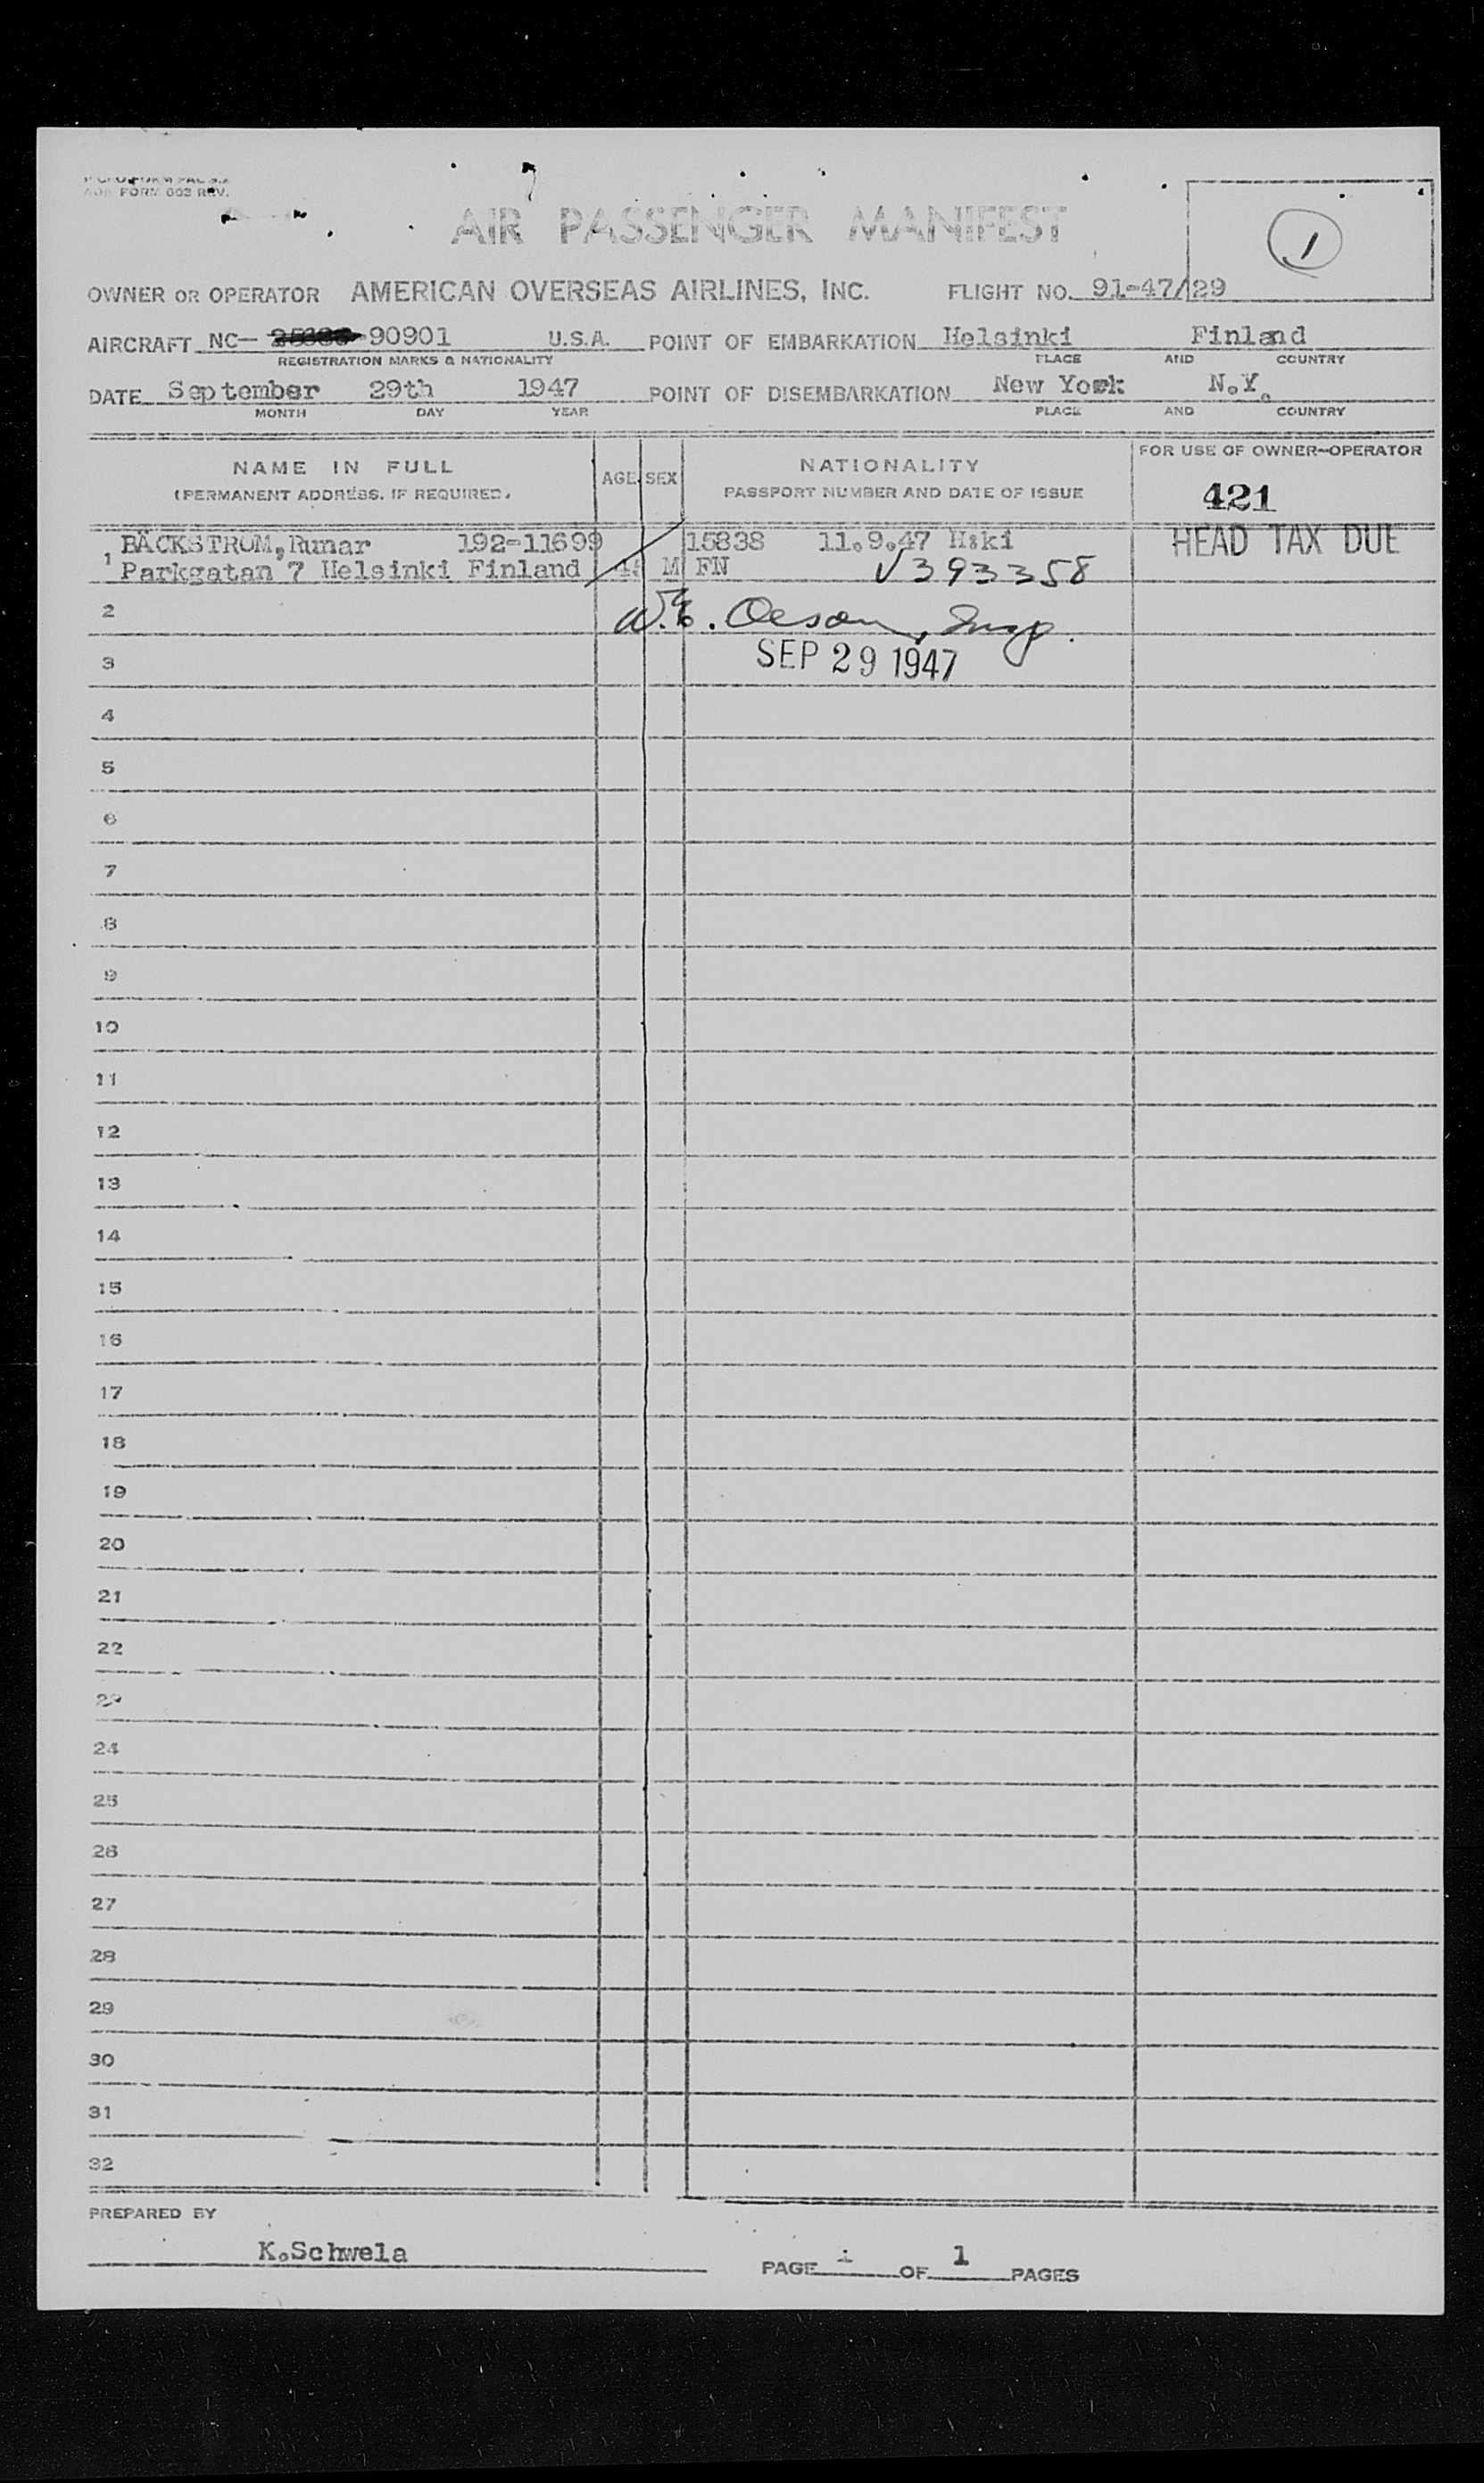 FORM 002 REV.
AIR PASSENGER MANIFEST
1
OWNER OR OPERATOR AMERICAN OVERSEAS AIRLINES, INC. FLIGHT NO. 91-47/29
AIRCRAFT NC- 90901 U.S.A. POINT OF EMBARKATION Helsinki Finland
REGISTRATION MARKS & NATIONALITY PLACE AND COUNTRY
DATE September 29th 1947 POINT OF DISEMBARKATION New York N.Y.
MONTH DAY YEAR PLACE AND COUNTRY
NAME IN FULL AGE SEX NATIONALITY FOR USE OF OWNER-OPERATOR
(PERMANENT ADDRESS, IF REQUIRED) PASSPORT NUMBER AND DATE OF ISSUE
421
BÄCKSTRÖM,Runar 192-11699 15838 11.9.47 H:ki HEAD TAX DUE
1 Parkgatan 7 Helsinki Finland M FN √393358
2 Insp.
3 SEP 29 1947
4
5
6
7
8
9
10
11
12
13
14
15
16
17
18
19
20
21
22
23
24
25
26
27
28
29
30
31
32
PREPARED BY
K.Schwela
PAGE 1 OF 1 PAGES